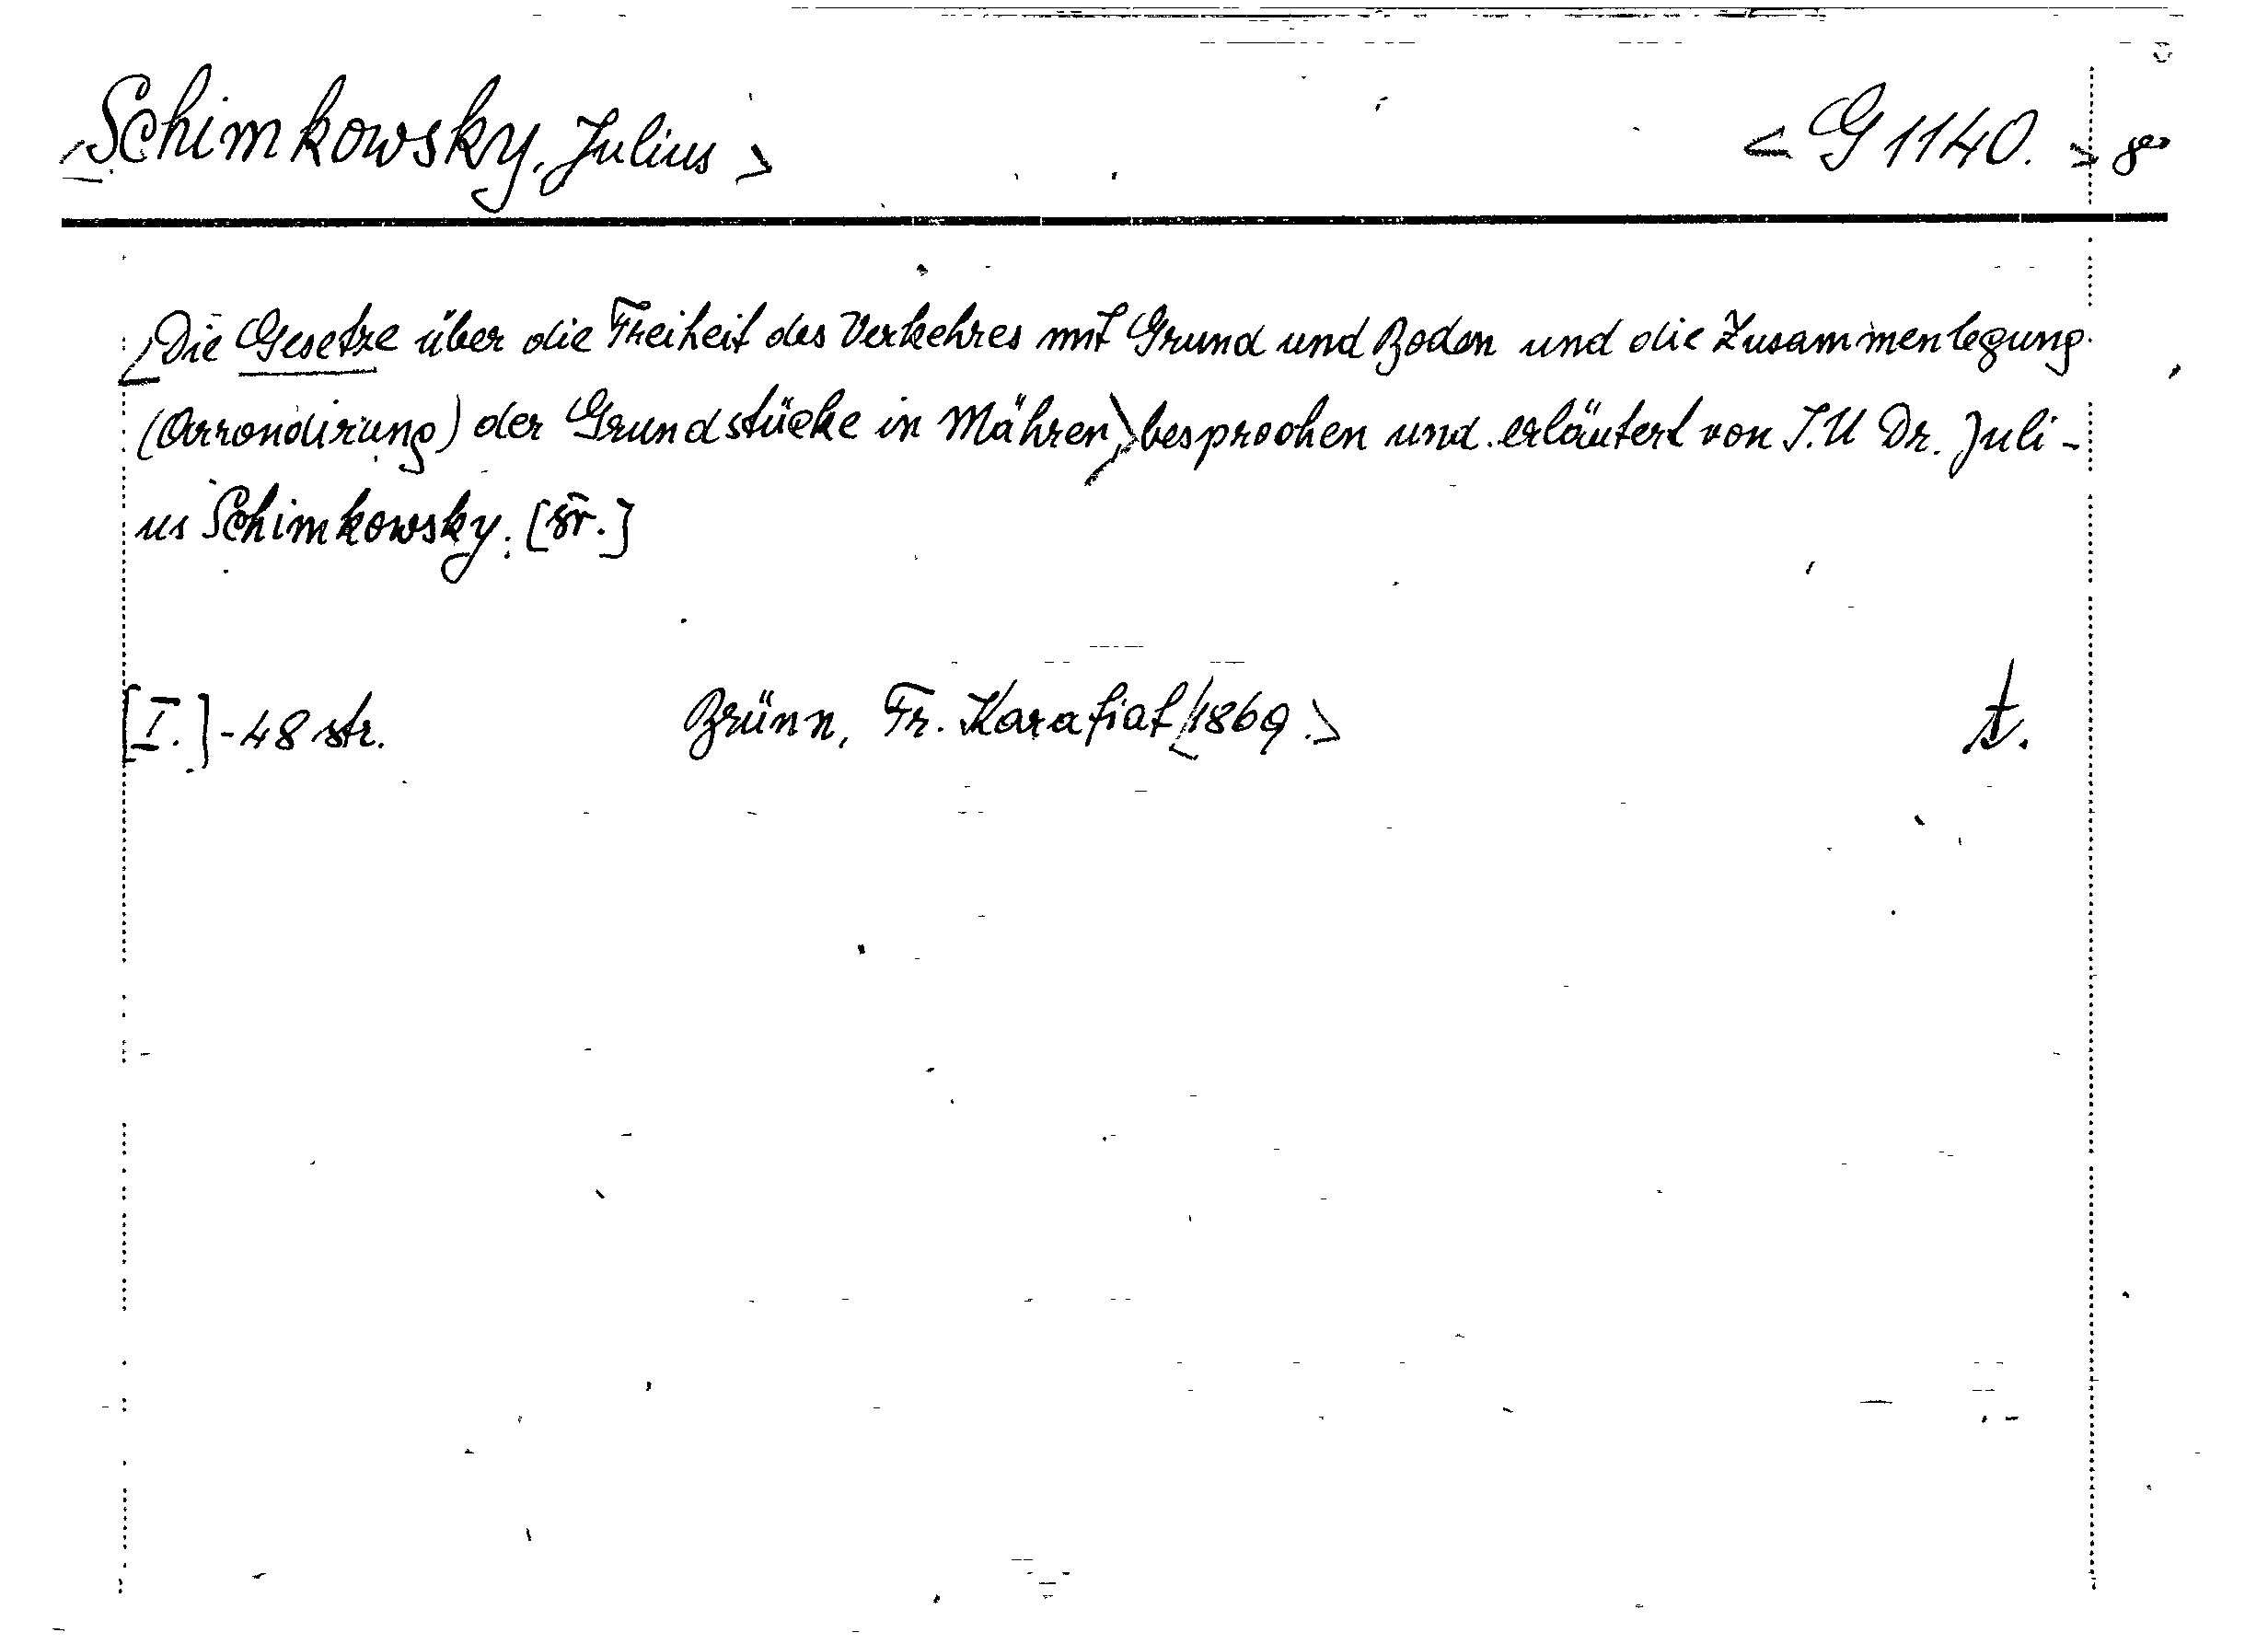 <Schimkowsky, Julius> <G 1140.> 8°
<Die Gesetze über die Freiheit des Verkehres mit Grund und Boden und die Zusammenlegung
(Arrondirung) der Grundstücke in Mähren,> besprochen und erläutert von J.U Dr. Juli-
us Schimkowsky. [šr.]
[I.]-48 str. Brünn, Fr. Karafiat <1869.> t.